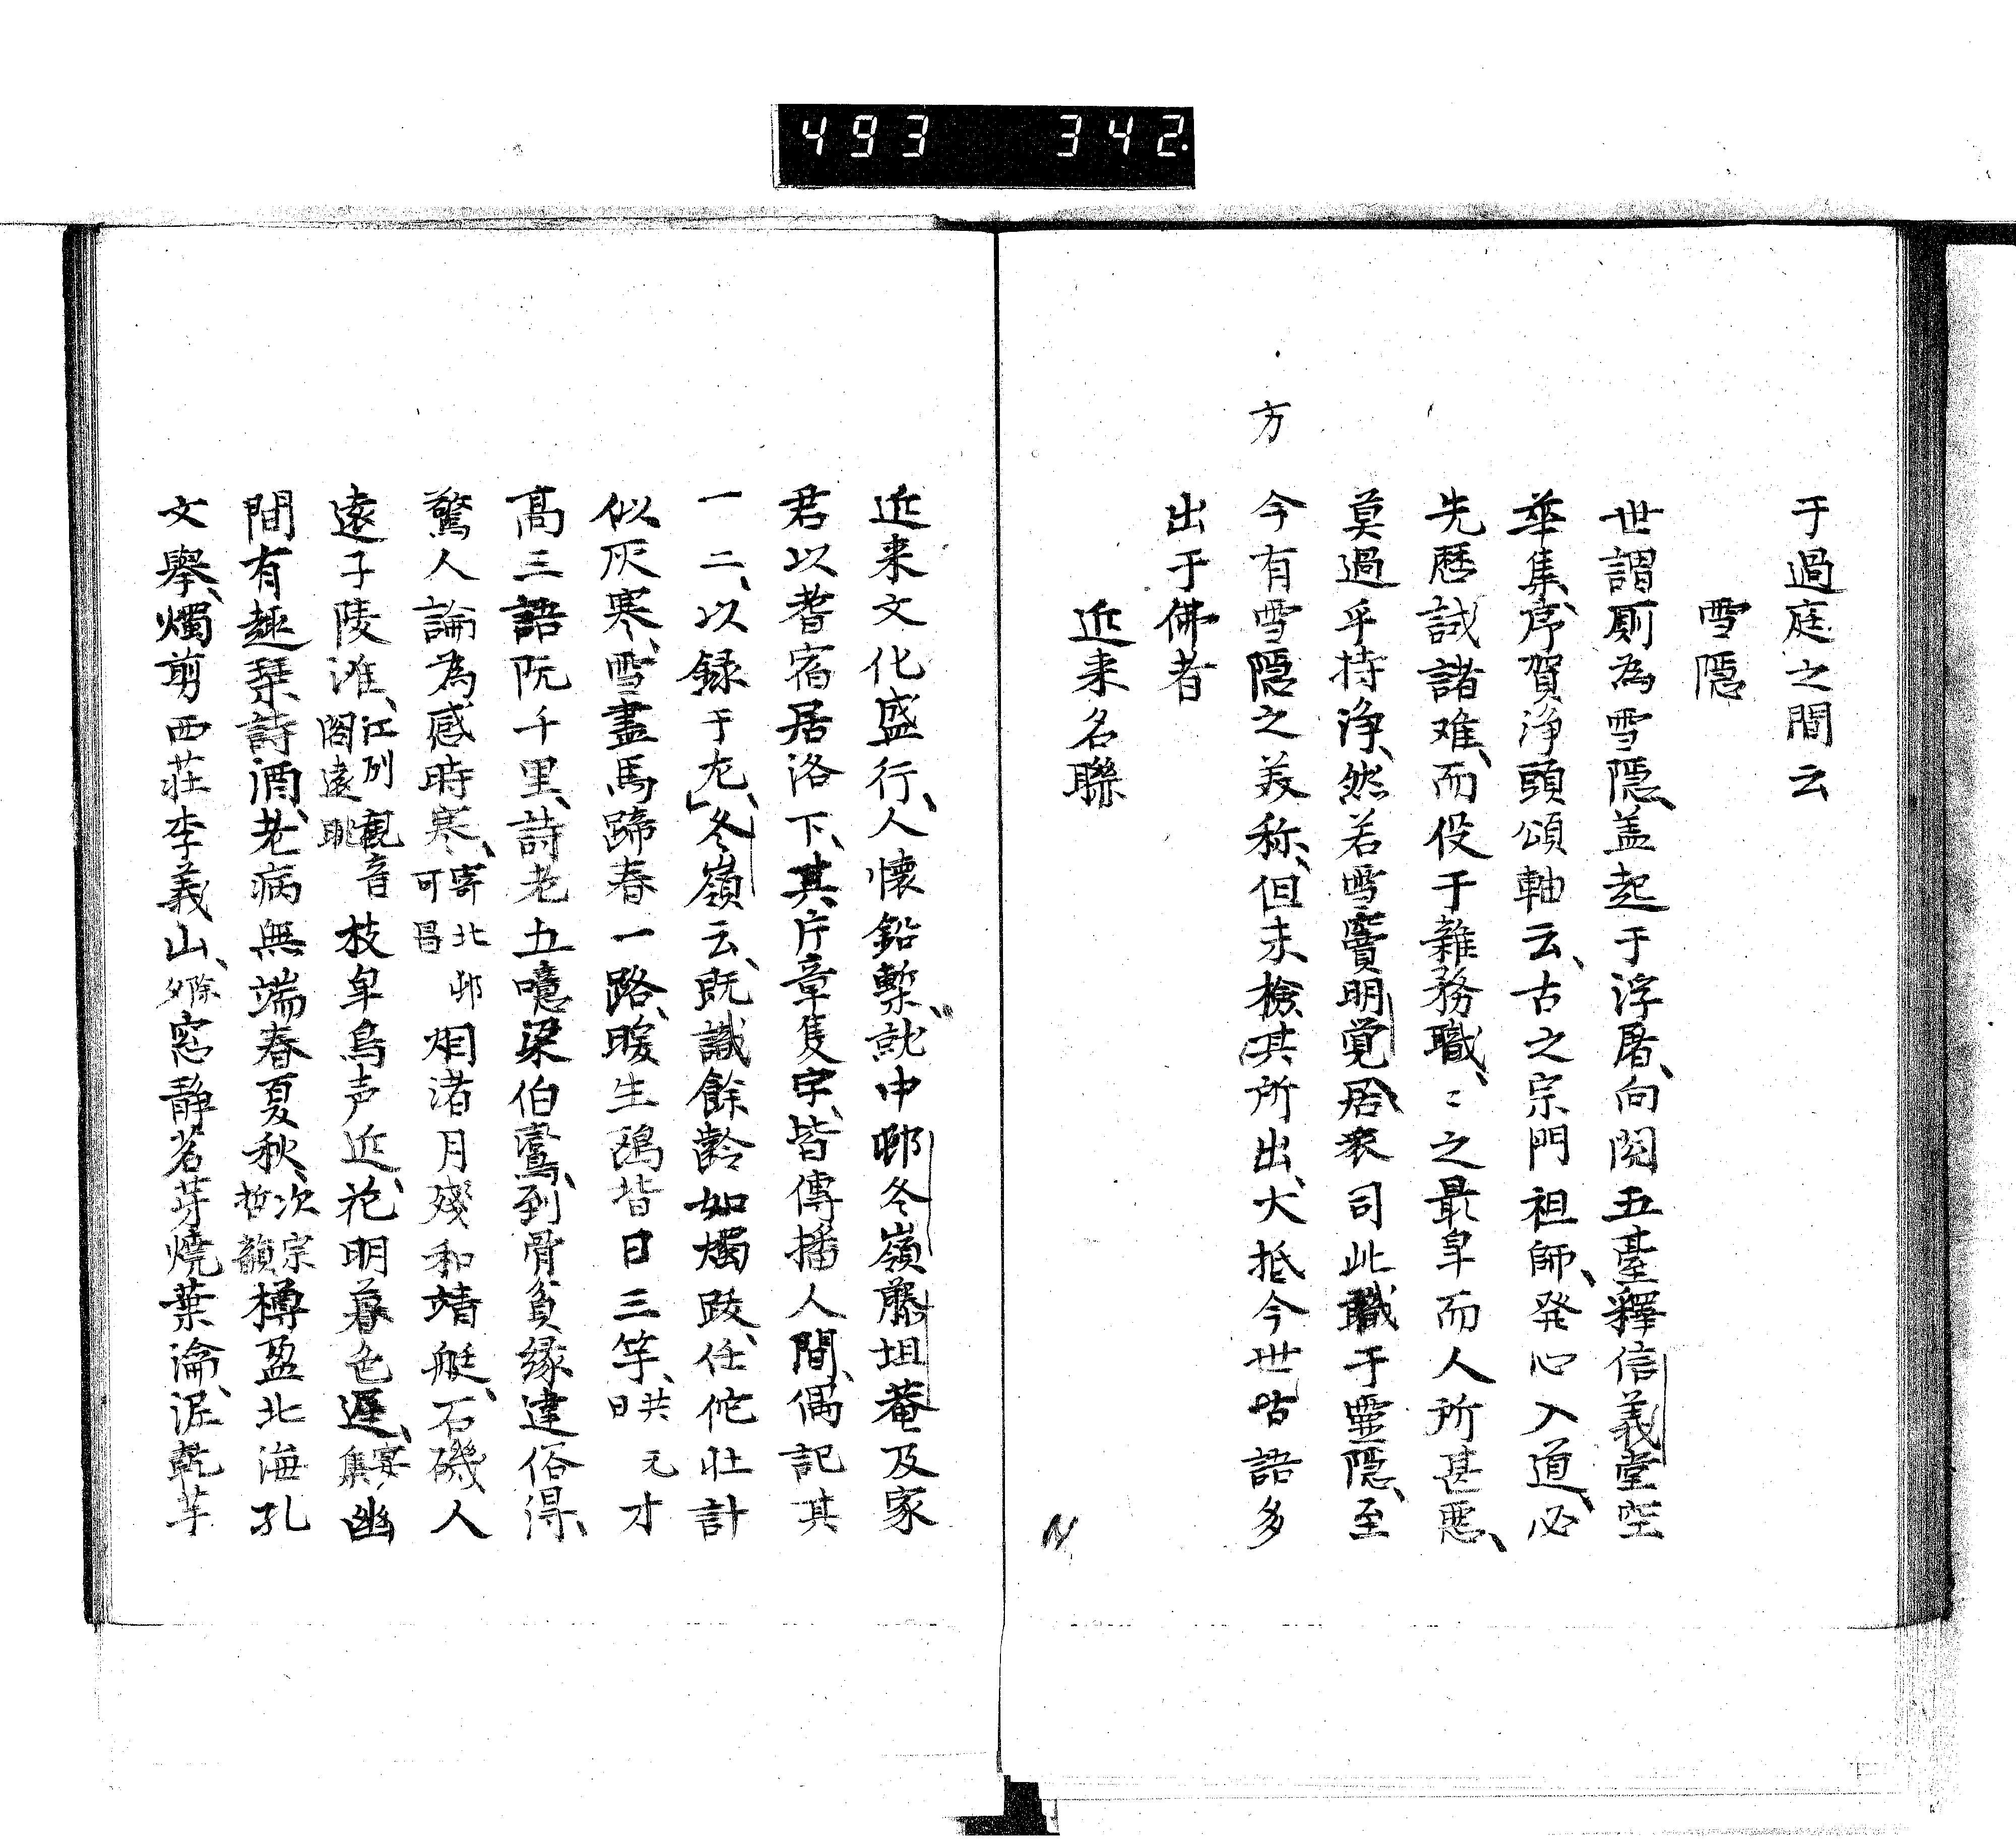 493 342.
于過庭之間云
雪隱
世謂厠為雪隱、盖起于浮屠、向閲五臺釋信義堂空
華集、序賀浄頭頌軸云、古之宗門祖師、発心入道、必
先歴試諸难、而伇于雜務職、〻之最卑而人所甚惡、
莫過乎持浄、然若雪竇明覚居衆司此職于靈隱、至
方
今有雪隱之美称、但未検其所出、大抵今世咕語多
出于佛者
近来名聯
近来文化盛行、人懐鉛槧、就中邨冬嶺藤坦菴及家
君以耆宿居洛下、其片章隻字、皆傳播人間、偶記其
一二、以録于左、冬嶺云、既識餘齡如燭跋、任佗壮計
似灰寒、雪盡馬蹄春一路、暖生鴉背日三竿、元日共才
高三語阮千里、詩老五噫梁伯鸞、到骨貧縁違俗得、
驚人論為感時寒、寄北邨可昌烟渚月殘和靖艇、石磯人
遠子陵灘、江列観音閣遠眺枝卑鳥声近、花明暮色遲、宴集幽
間有趣琹詩酒、老病無端春夏秋、次宗哲韻樽盈北海孔
文擧、燭剪西莊李義山、窓静茗芽燒葉淪、泥乾芋